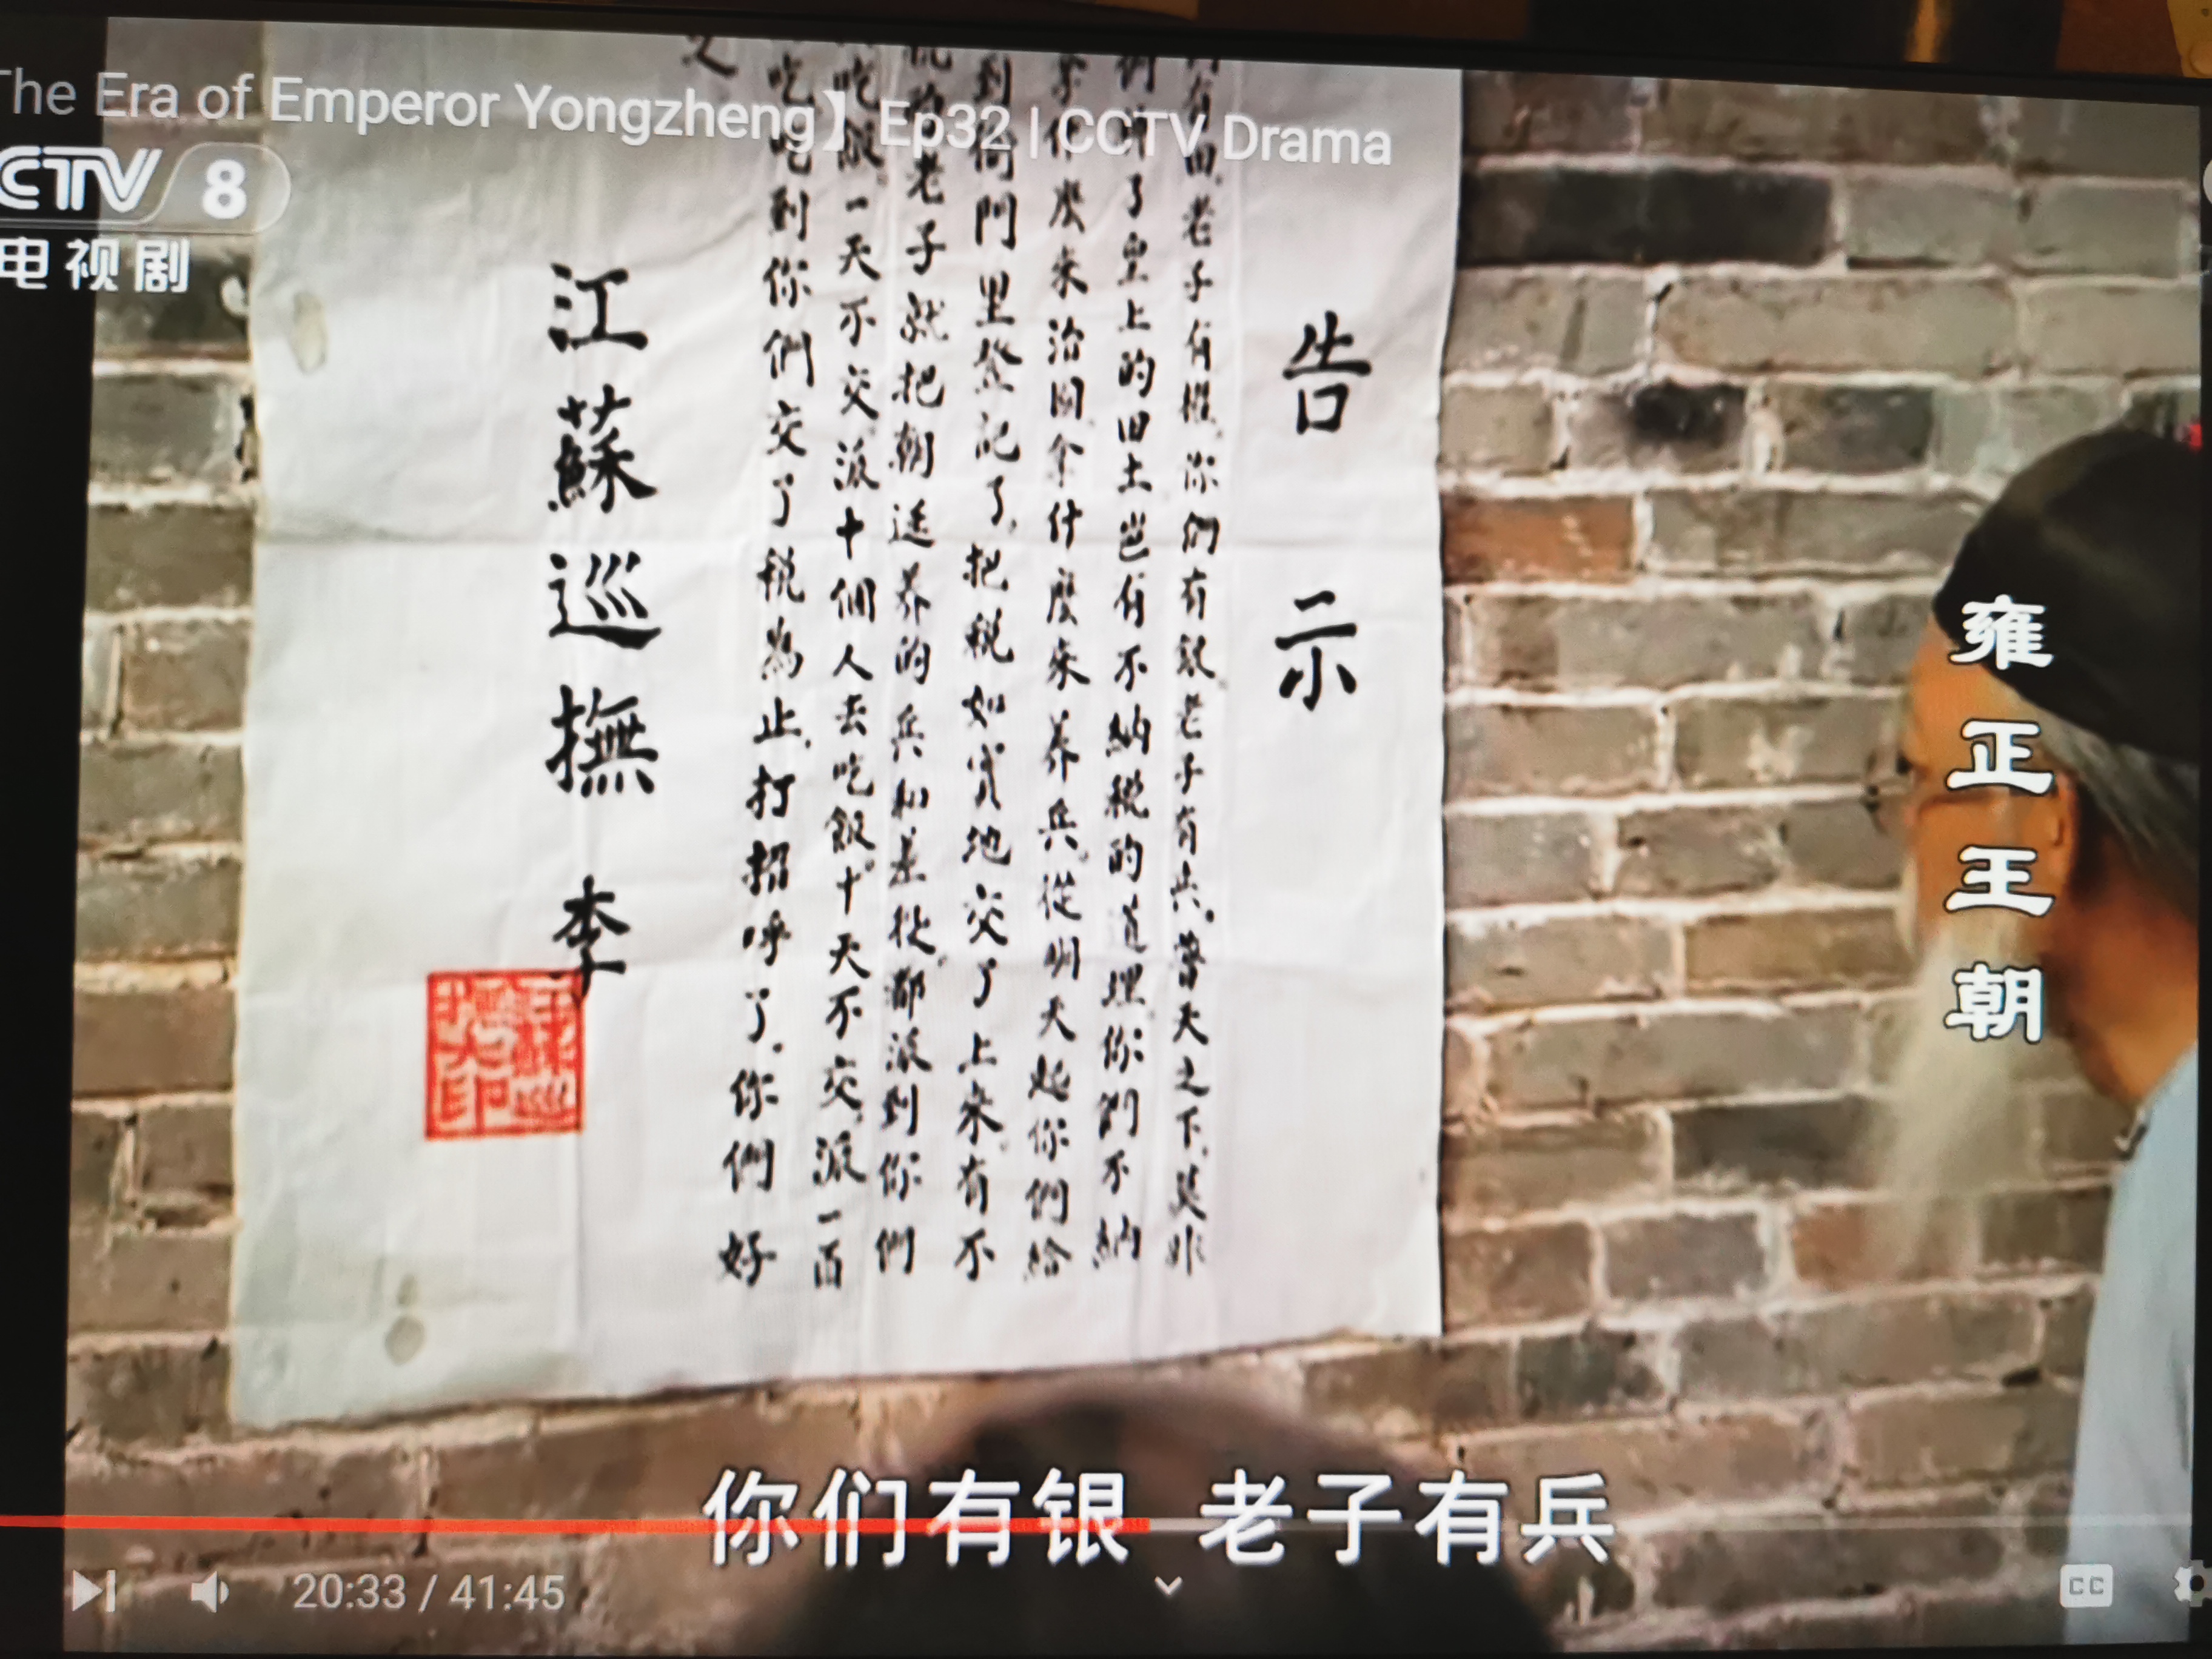 The Era of Emperor Yongzheng】Ep32 | CCTV Drama
CCTV 8
电视剧
告示
有田,老子有權,你們有銀,老子有兵。普天之下,莫非
了皇上的田土豈有不納稅的道理,你們不納
什麼來治國,拿什麼來养兵。從明天起你們給
到衙門里登記了,把稅如實地交了上來,有不
老子就把朝廷养的兵和差役,都派到你們
吃飯,一天不交,派十個人去吃飯。十天不交,派一百
吃,吃到你們交了稅為止,打招呼了,你們好
之
江蘇巡撫 李
雍正王朝
你们有银 老子有兵
20:33 / 41:45
CC